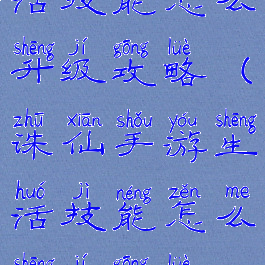 活技能怎么
shēng jí gōng lüè
升级攻略（
zhū xiān shǒu yóu shēng
诛仙手游生
huó jì néng zěn me
活技能怎么
shēng jí gōng lüè